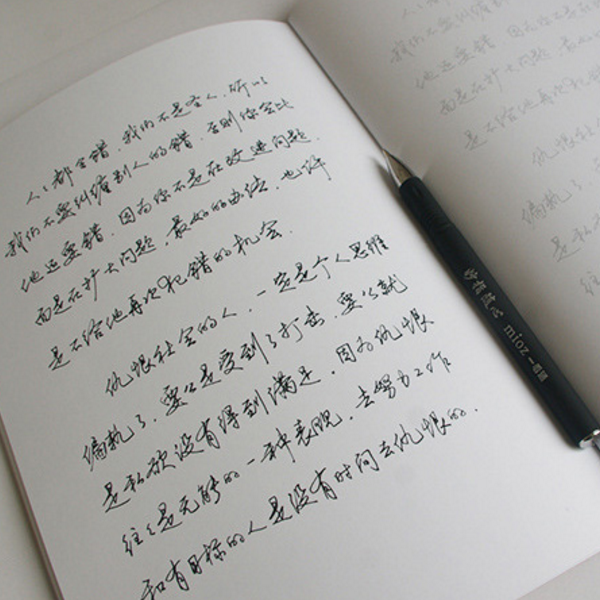 人人都会错，我们不是圣人，所以
我们不要纠缠别人的错，否则你会比
他还要错，因为你不是在改进问题，
而是在扩大问题，最好的办法，也许
是不给他再次犯错的机会。
仇恨社会的人，一定是个人思维
偏执了，要么是受到了打击，要么就
是私欲没有得到满足，因为仇恨
往往是无能的一种表现，去努力工作
和有目标的人是没有时间去仇恨的。
mioz 一番混